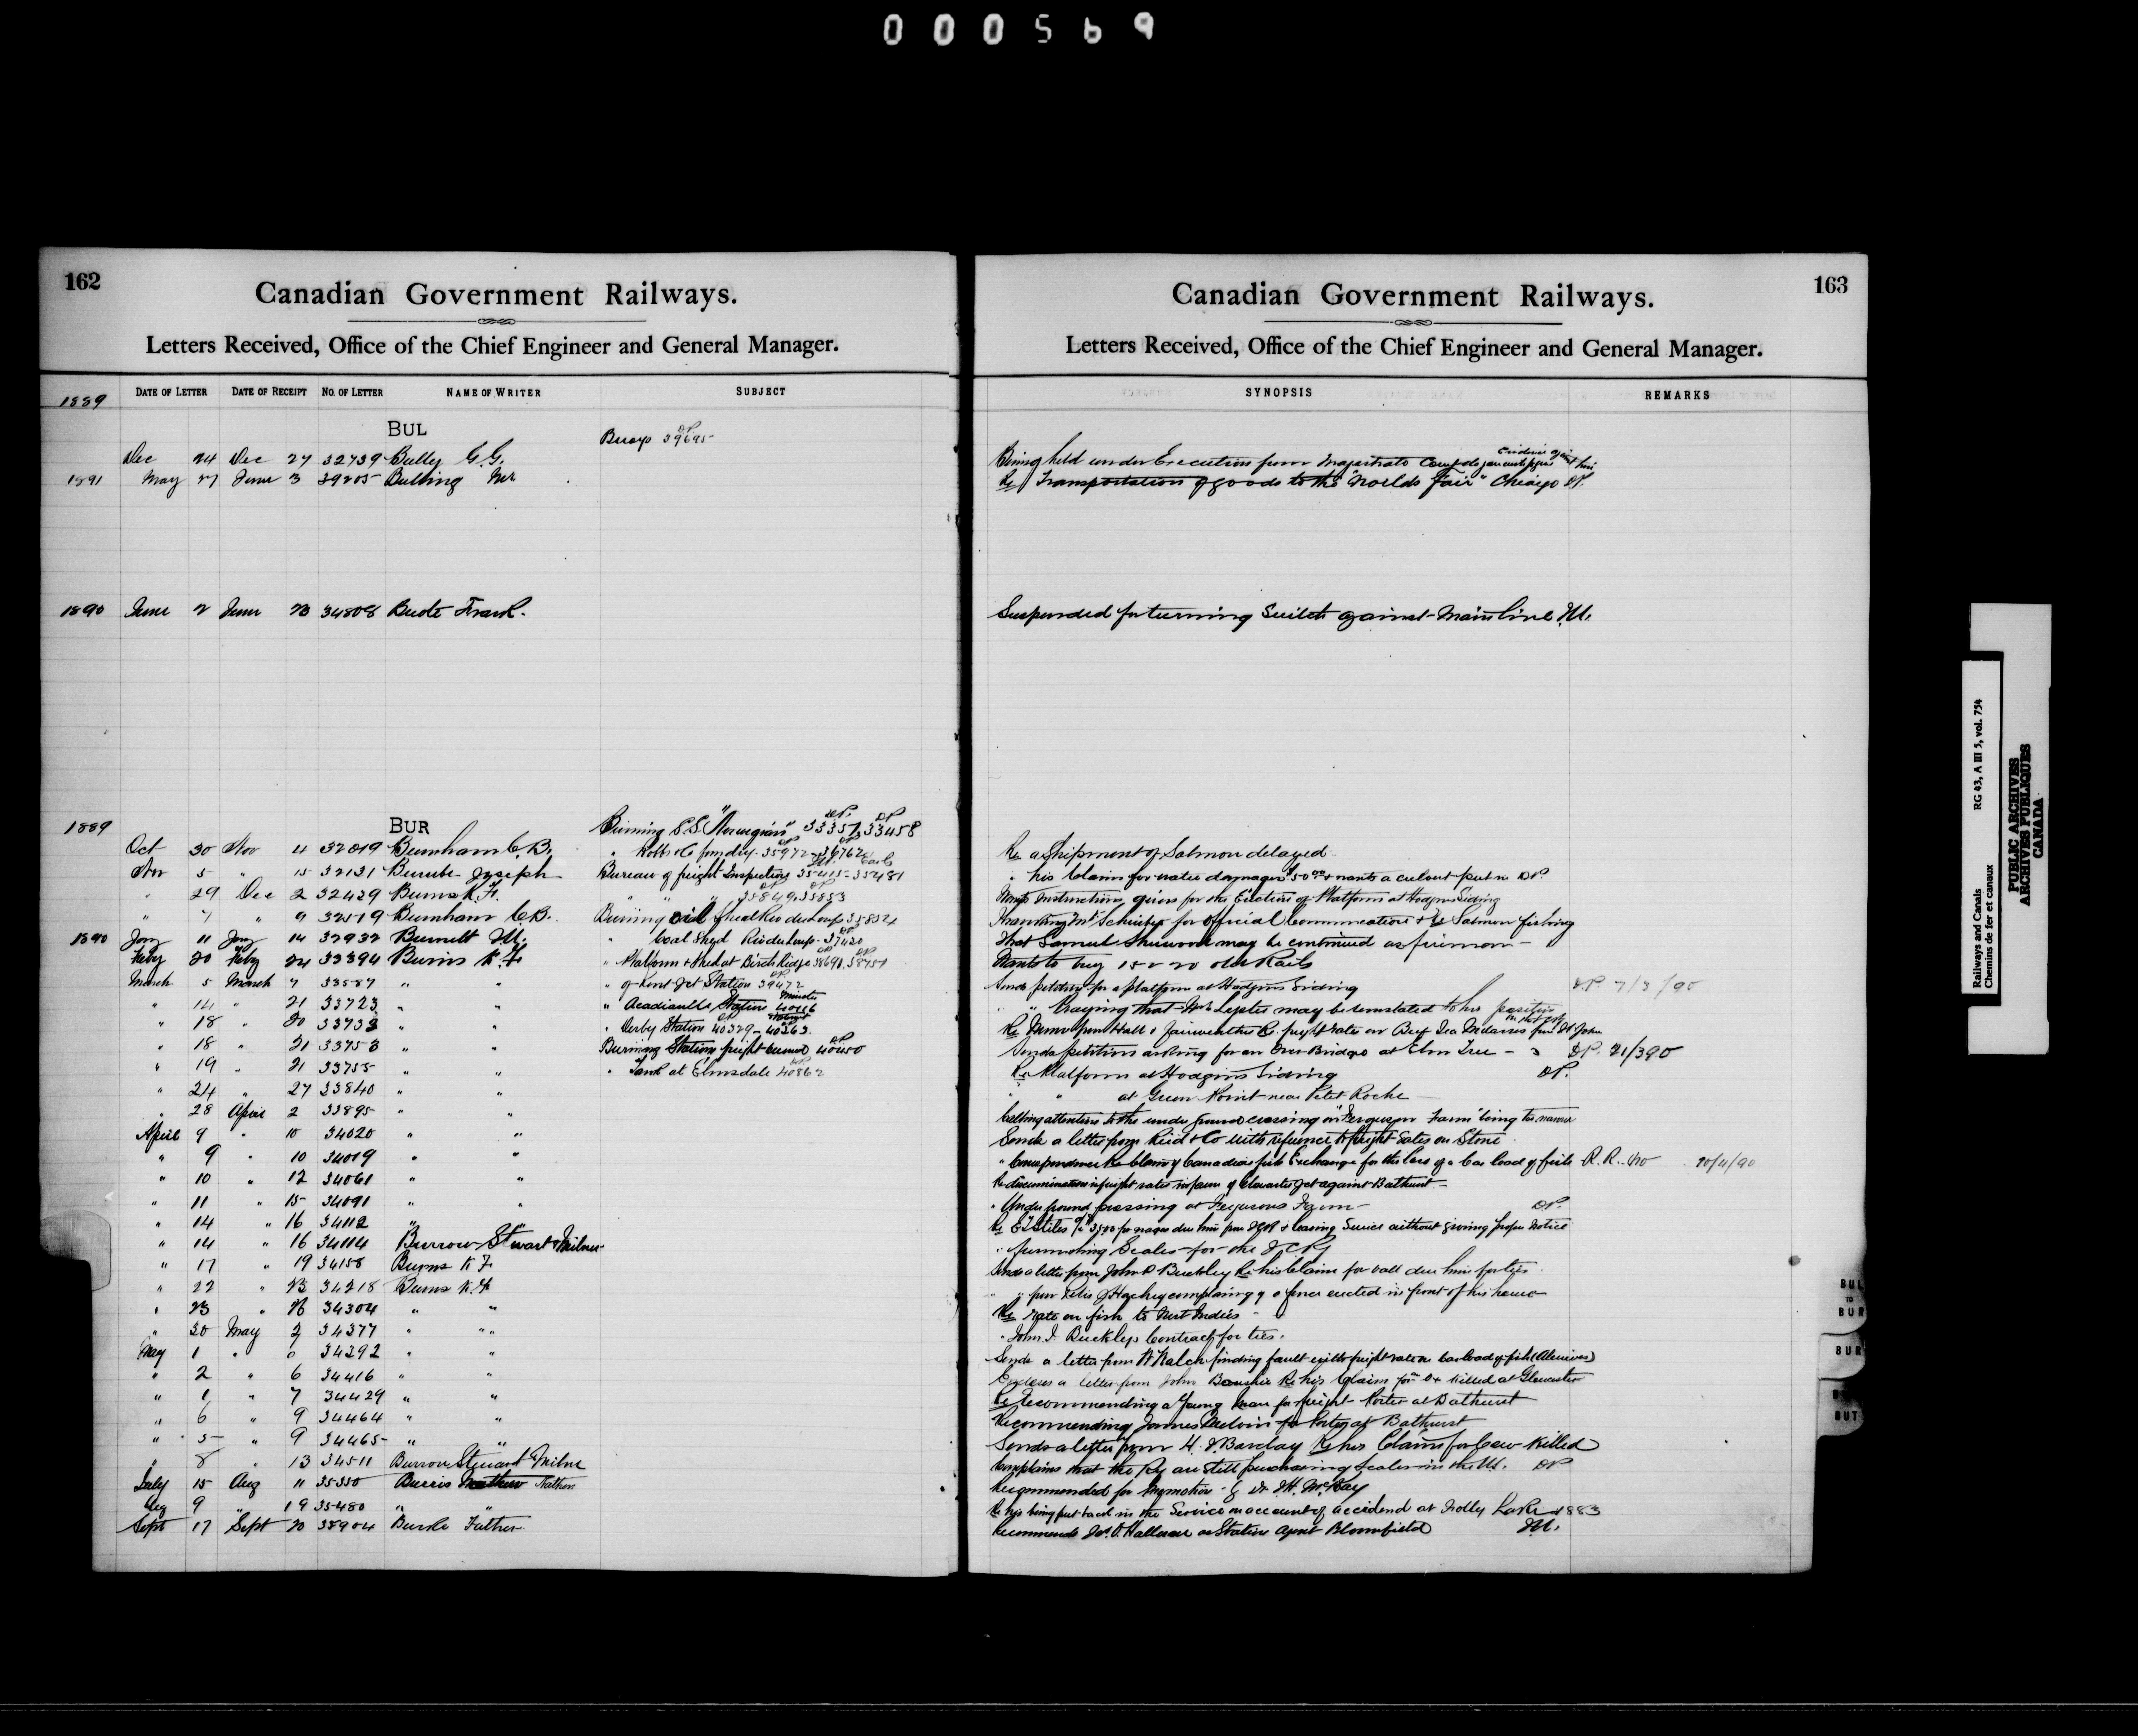 000569
162
Canadian Government Railways.
Letters Received, Office of the Chief Engineer and General Manager.
DATE OF LETTER DATE OF RECEIPT NO. OF LETTER NAME OF WRITER SUBJECT
1889
BUL
Buoys 39695
Dec 24 Dec 27 32739 Bully G.G.
1891 May 27 June 3 39205 Bulling
1890 June 2 June 23 34808 Frank.
1889 BUR Burning S.S. "Norwegian" 33357, 33458
Oct 30 Nov 4 32019 Burnham C.B. " Robb & Co foundry 35972 - 36762
Nov 5 " 15 32131 Burube Joseph Bureau of freight Inspection 35415 - 35481
" 29 Dec 2 32429 Burns K.F. 35849, 35853
" 7 " 9 32519 Burnham C.B. Burning oil 35832
1890 Jany 11 Jany 14 32932 Burnett M. " Coal Shed Riv du Loup 37420
Feby 20 Feby 24 33394 Burns K.F. " Platform & Shed at Birch Ridge 38698, 38751
March 5 March 7 33587 " " " of Kent Jct Station 39472
" 14 " 21 33723 " " " Acadiaville Station 40116
" 18 " 20 33738 " " " Derby Station 40329 - 40363
" 18 " 21 33753 " " Burning Station freight burned 40450
" 19 " 21 33755 " " " Tank at Elmsdale 40862
" 24 " 27 33840 " "
" 28 April 2 33895 " "
April 9 " 10 34020 " "
" 9 " 10 34019 " "
" 10 " 12 34061 " "
" 11 " 15 34091 " "
" 14 " 16 34112 "
" 14 " 16 34114 Burrow Stewart & Milner
" 17 " 19 34158 Burns K F
" 22 " 23 34218 Burns K.F.
" 23 " 26 34304 " "
" 30 May 2 34377 " "
May 1 " 34392 " "
" 2 " 6 34416 " "
" 1 " 7 34429 " "
" 6 " 9 34464 " "
" 5 " 9 34465 " "
" 8 " 13 34511 Burrow Stewart & Milne
July 15 Aug 11 35350 Burris Nathan
Aug 9 " 19 35480 " "
Sept 17 Sept 20 35904 Burke Father
163
Canadian Government Railways.
Letters Received, Office of the Chief Engineer and General Manager.
SYNOPSIS REMARKS
Being held under Execution from Magistrates
Re Transportation of goods to the "Worlds Fair" Chicago DP.
Suspended for turning Switch against Main line M.
Re a Shipment of Salmon delayed
" his Claim for water damages $50.00 & wants a culvert put in DP.
Wants Instructions given for the Erection of Platform at Hodgins Siding
Thanking Mr Schreiber for Official Communication Re Salmon fishing
That Samuel Sherwood may be continued as fireman
Wants to buy 15 or 20 old Rails
Sends petition for a platform at Hodgins Siding DP 7/3/90
" Praying that Mr Lepter may be reinstated to his position
Re Memo from Hall & Fairweather Re freight rate on Beef Tea Molasses from St John
Sends petition asking for an Over Bridge at Elm Tree DP. 21/3 90
Re Platform at Hodgins Siding DP.
" " at Green Point near Petit Roche
Calling attention to the under ground crossing on "Ferguson Farm" being too narrow
Sends a letter from Reid & Co with reference to freight rates on Stone
" Correspondence Re Claim of Canadian fish Exchange for the loss of a Car load of fish R.R. 20/4/90
Re discrimination in freight rates in favor of Gloucester Jct against Bathurst
" Underground crossing at Fergusons Farm DP.
Re E. Stiles for wages due him from ICR & leaving Service without giving proper Notice
" furnishing Scales for the ICRy
Sends a letter from John P Buckley Re his Claim for ball due him for ties
" " from Felix J Hachey complaining of a fence erected in front of his house
Re rate on fish to West Indies
" John J. Buckleys Contract for ties.
Sends a letter from W Walsh finding fault with freight rate on Car load of fish (Alewives)
Encloses a letter from John Re his Claim for Ox killed at Gloucester
Re Recommending a Young Man for freight Porter at Bathurst
Recommending James Melvin for Porter at Bathurst
Sends a letter from H. J. Barclay Re her Claim for Cow Killed
Complains that the Ry are Still purchasing Scales in the US. DP
Recommended for Promotion by Dr. H. McKay
Re his being put back in the Service on account of accident at Folly Lake 1883
Recommends Jas. O. Halloran as Station Agent Bloomfield M.
BUL TO BUR
BUR
BUT
Railways and Canals RG 43, A III 5, vol. 754
Chemins de fer et canaux
PUBLIC ARCHIVES
ARCHIVES PUBLIQUES
CANADA